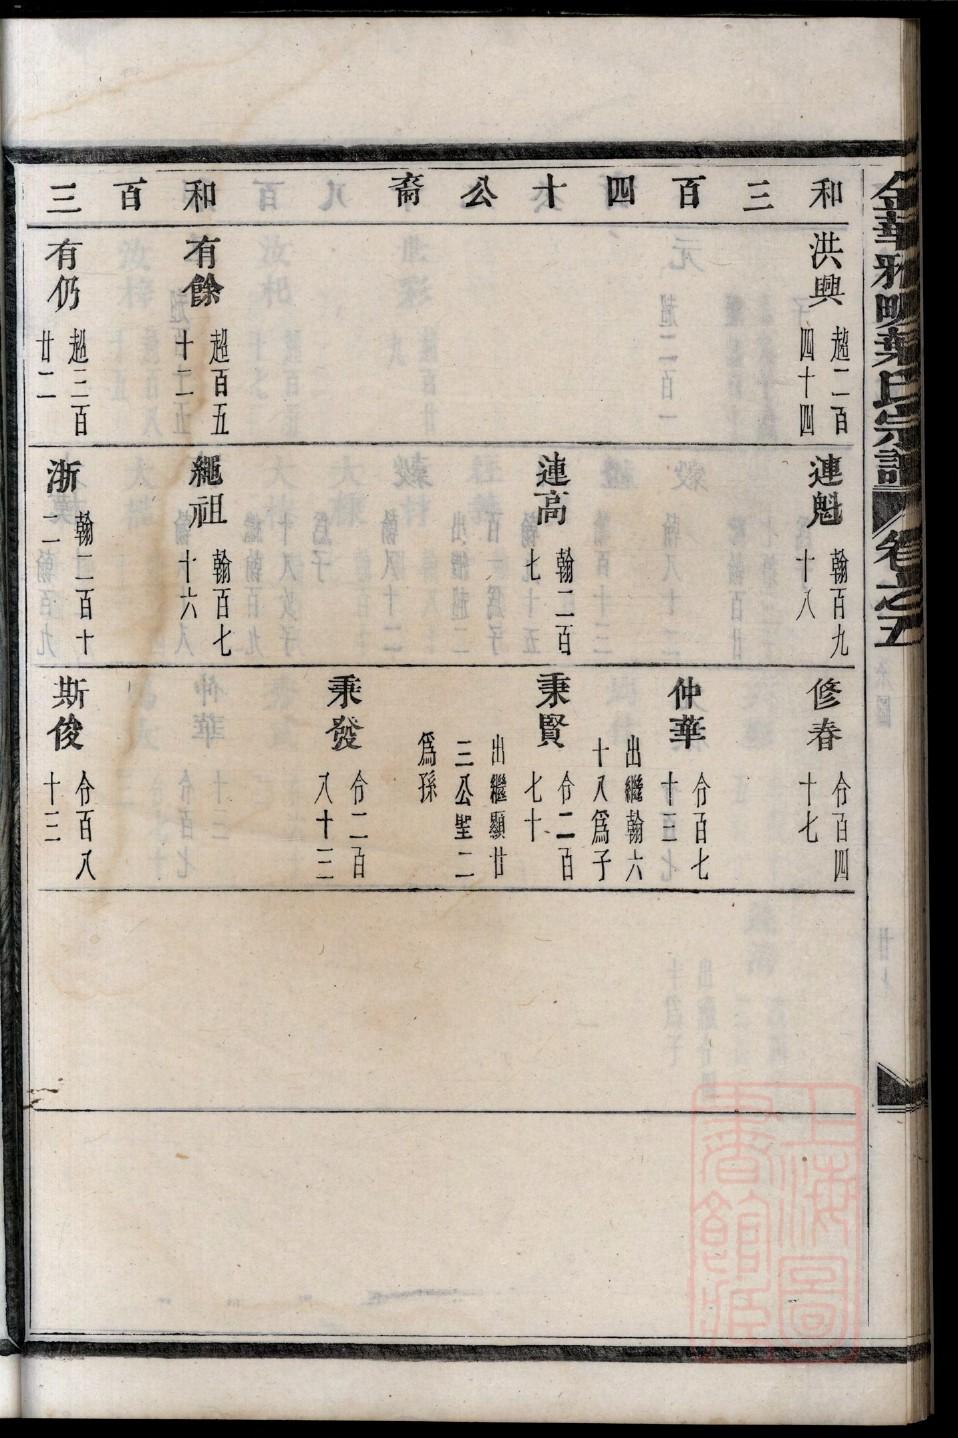 金華雅畈葉氏宗譜 卷之五
和三百四十公裔 和百三
洪興 超二百四十四
有餘 超百五十二
有仍 超三百廿二
連魁 翰百九十八
連高 翰二百七
繩祖 翰百七十六
浙 翰二百十一
修春 仒百四十七
仲華 仒百七十五 出繼翰六十八爲子
秉賢 仒二百七十 出繼顯廿三公聖二爲孫
秉發 仒二百八十三
斯俊 仒百八十三
上海圖書館藏